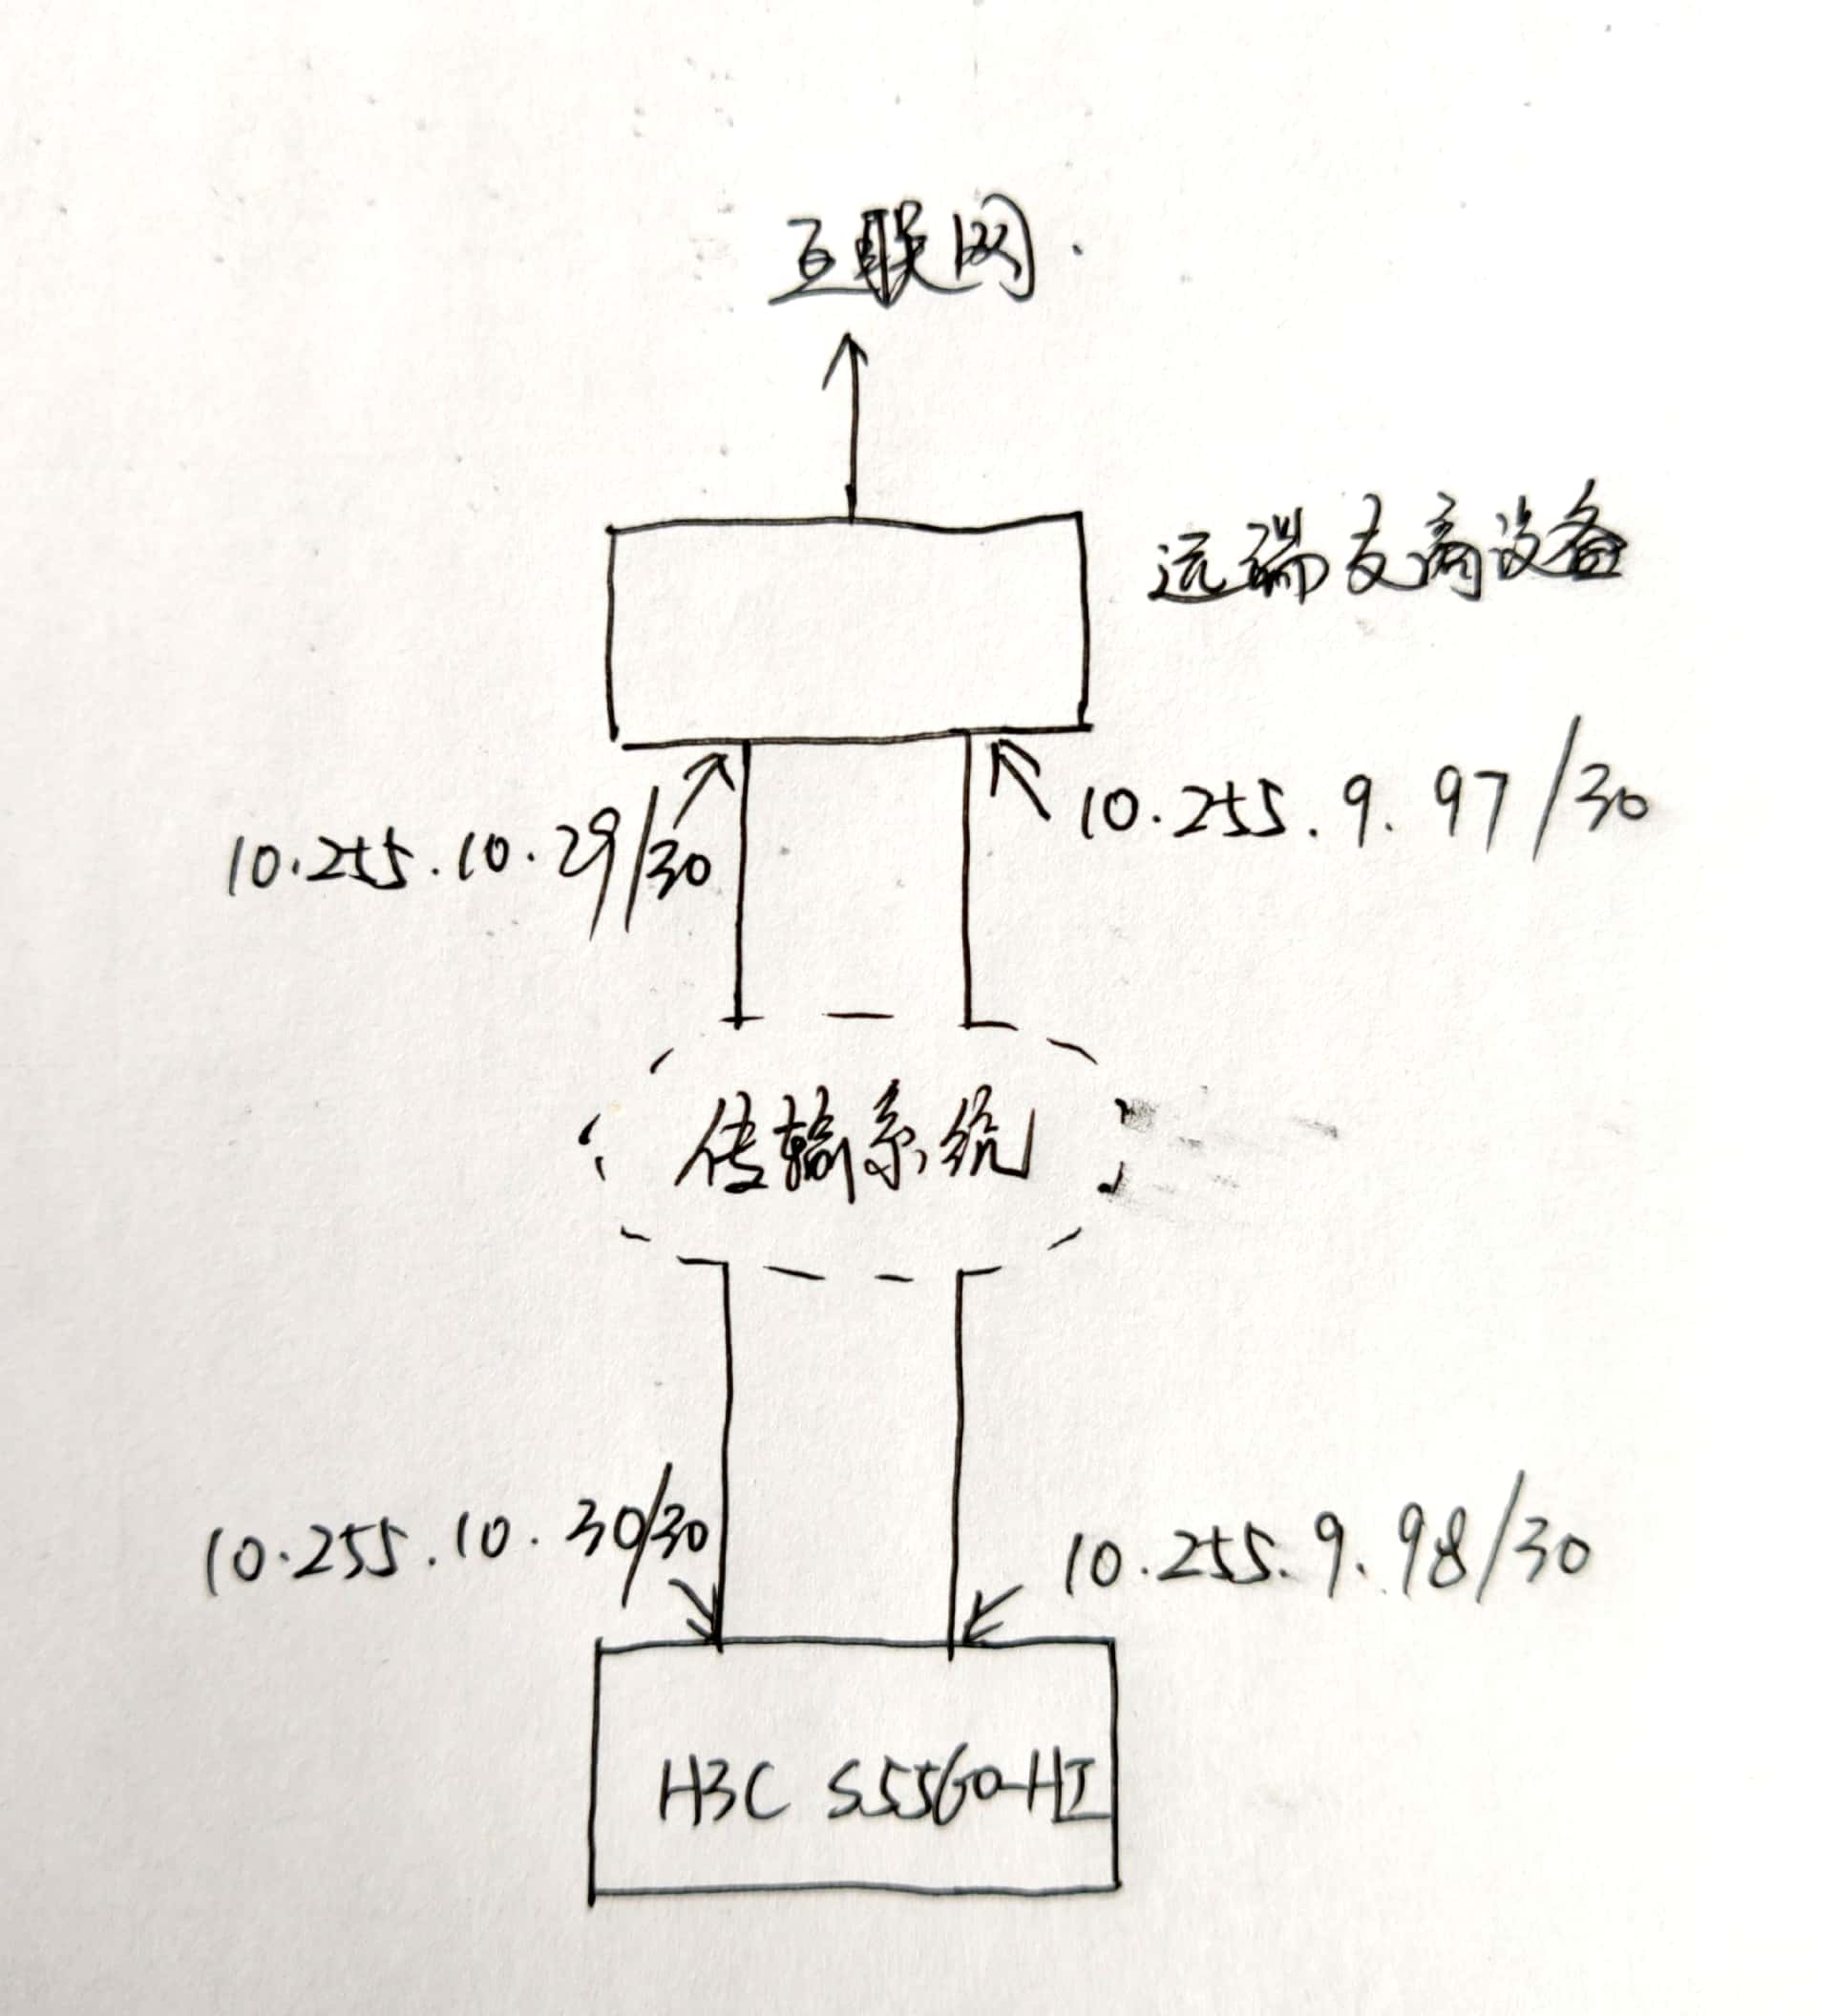 互联网.
远端友商设备
10.255.9.97/30
10.255.10.29/30
传输系统
10.255.10.30/30
10.255.9.98/30
H3C S5560-HI